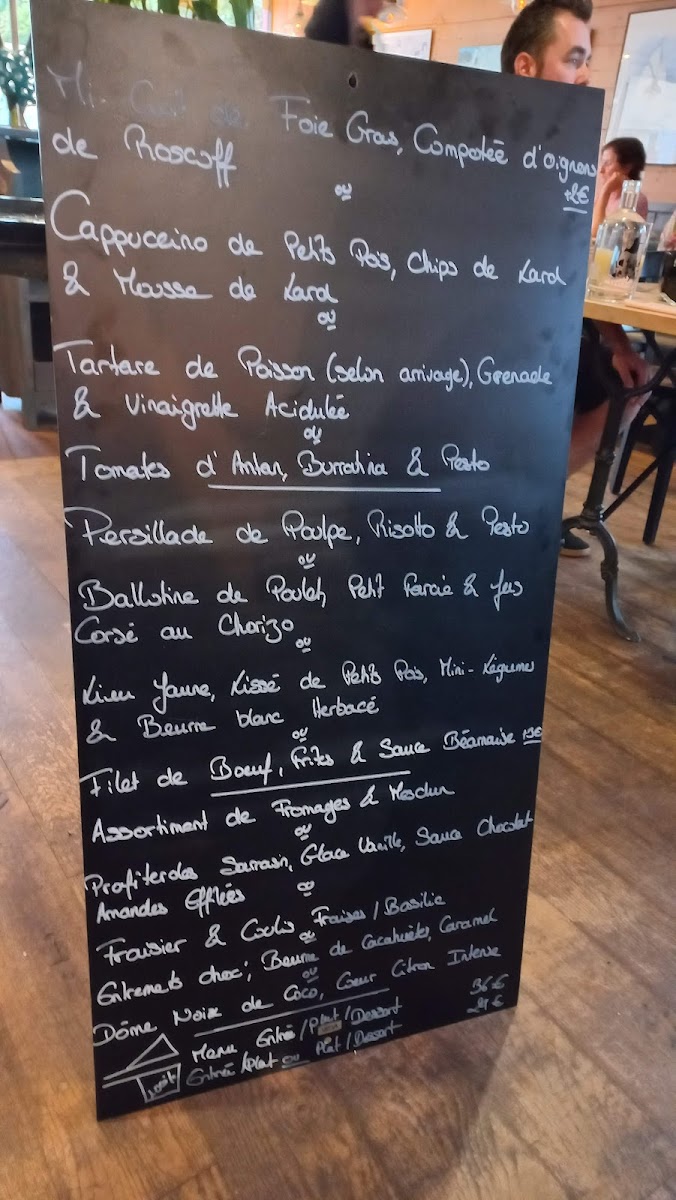 Mi-Cuit de Foie Gras, Compotée d'oignons
de Roscoff
+2€
ou
Cappuccino de Petits Pois, Chips de Lard
& Mousse de Lard
ou
Tartare de Poisson (selon arrivage), Grenade
& Vinaigrette Acidulée
ou
Tomates d'Antan, Burratina & Pesto
Persillade de Poulpe, Risotto & Pesto
ou
Ballotine de Poulet, Petit Farcie & Jus
Corsé au Chorizo
ou
Lieu Jaune, Lissé de Petits Pois, Mini-Légumes
& Beurre blanc Herbacé
ou
Filet de Boeuf, Frites & Sauce Béarnaise +3€
Assortiment de Fromages & Mesclun
ou
Profiteroles Sarrasin, Glace Vanille, Sauce Chocolat
Amandes Effilées
ou
Fraisier & Coulis Fraises/Basilic
ou
Entremets choc', Beurre de Cacahuètes, Caramel
ou
Dôme Noix de Coco, Coeur Citron Intense
Menu Entrée/Plat/Dessert 36€
Entrée/Plat ou Plat/Dessert 29€